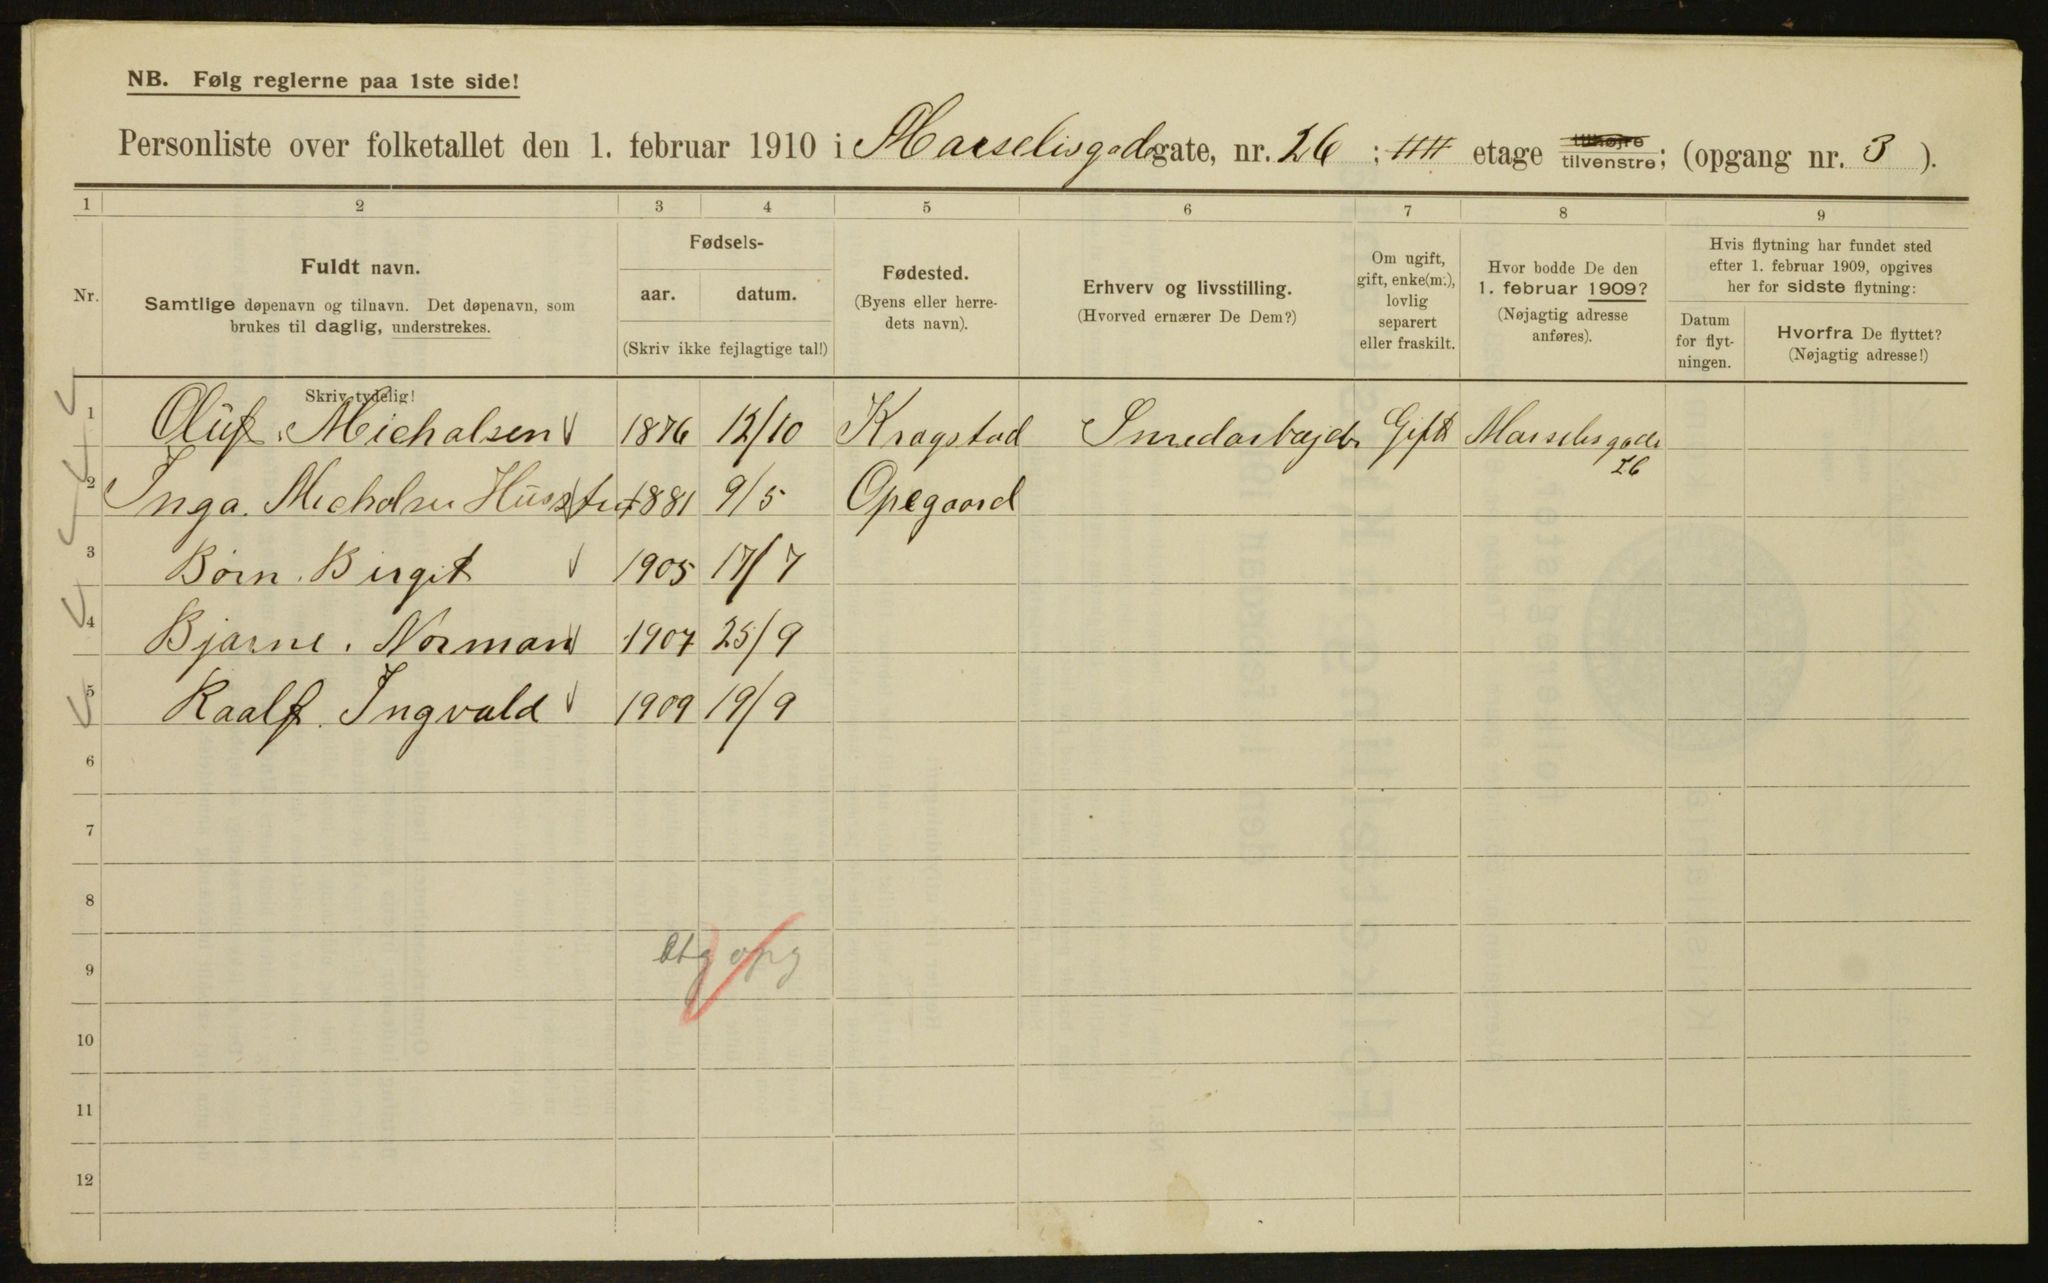 NB. Følg reglerne paa 1ste side!
Personliste over folketallet den 1. februar 1910 i Marselisgadegate, nr. 26 ; etage tilhøjre tilvenstre; (opgang nr. 3 ).
1 2 3 4 5 6 7 8 9
Nr.
Fuldt navn.
Samtlige døpenavn og tilnavn. Det døpenavn, som
brukes til daglig, understrekes.
Skriv tydelig!
Fødsels-
aar. datum.
(Skriv ikke fejlagtige tal!)
Fødested.
(Byens eller herre-
dets navn).
Erhverv og livsstilling.
(Hvorved ernærer De Dem?)
Om ugift,
gift, enke(m.),
lovlig
separert
eller fraskilt.
Hvor bodde De den
1. februar 1909?
(Nøjagtig adresse
anføres).
Hvis flytning har fundet sted
efter 1. februar 1909, opgives
her for sidste flytning:
Datum
for flyt-
ningen.
Hvorfra De flyttet?
(Nøjagtig adresse!)
1 Oluf. Micholsen 1876 12/10 Kragstad Smedarbajder Gift Marselisgade 26
2 Inga. Micholsen Husstru 1881 9/5 Opegaard
3 Børn. Birgit 1905 17/7
4 Bjarne. Norman 1907 25/9
5 Raalf. Ingvald 1909 19/9
6
7
8
9 opg
10
11
12